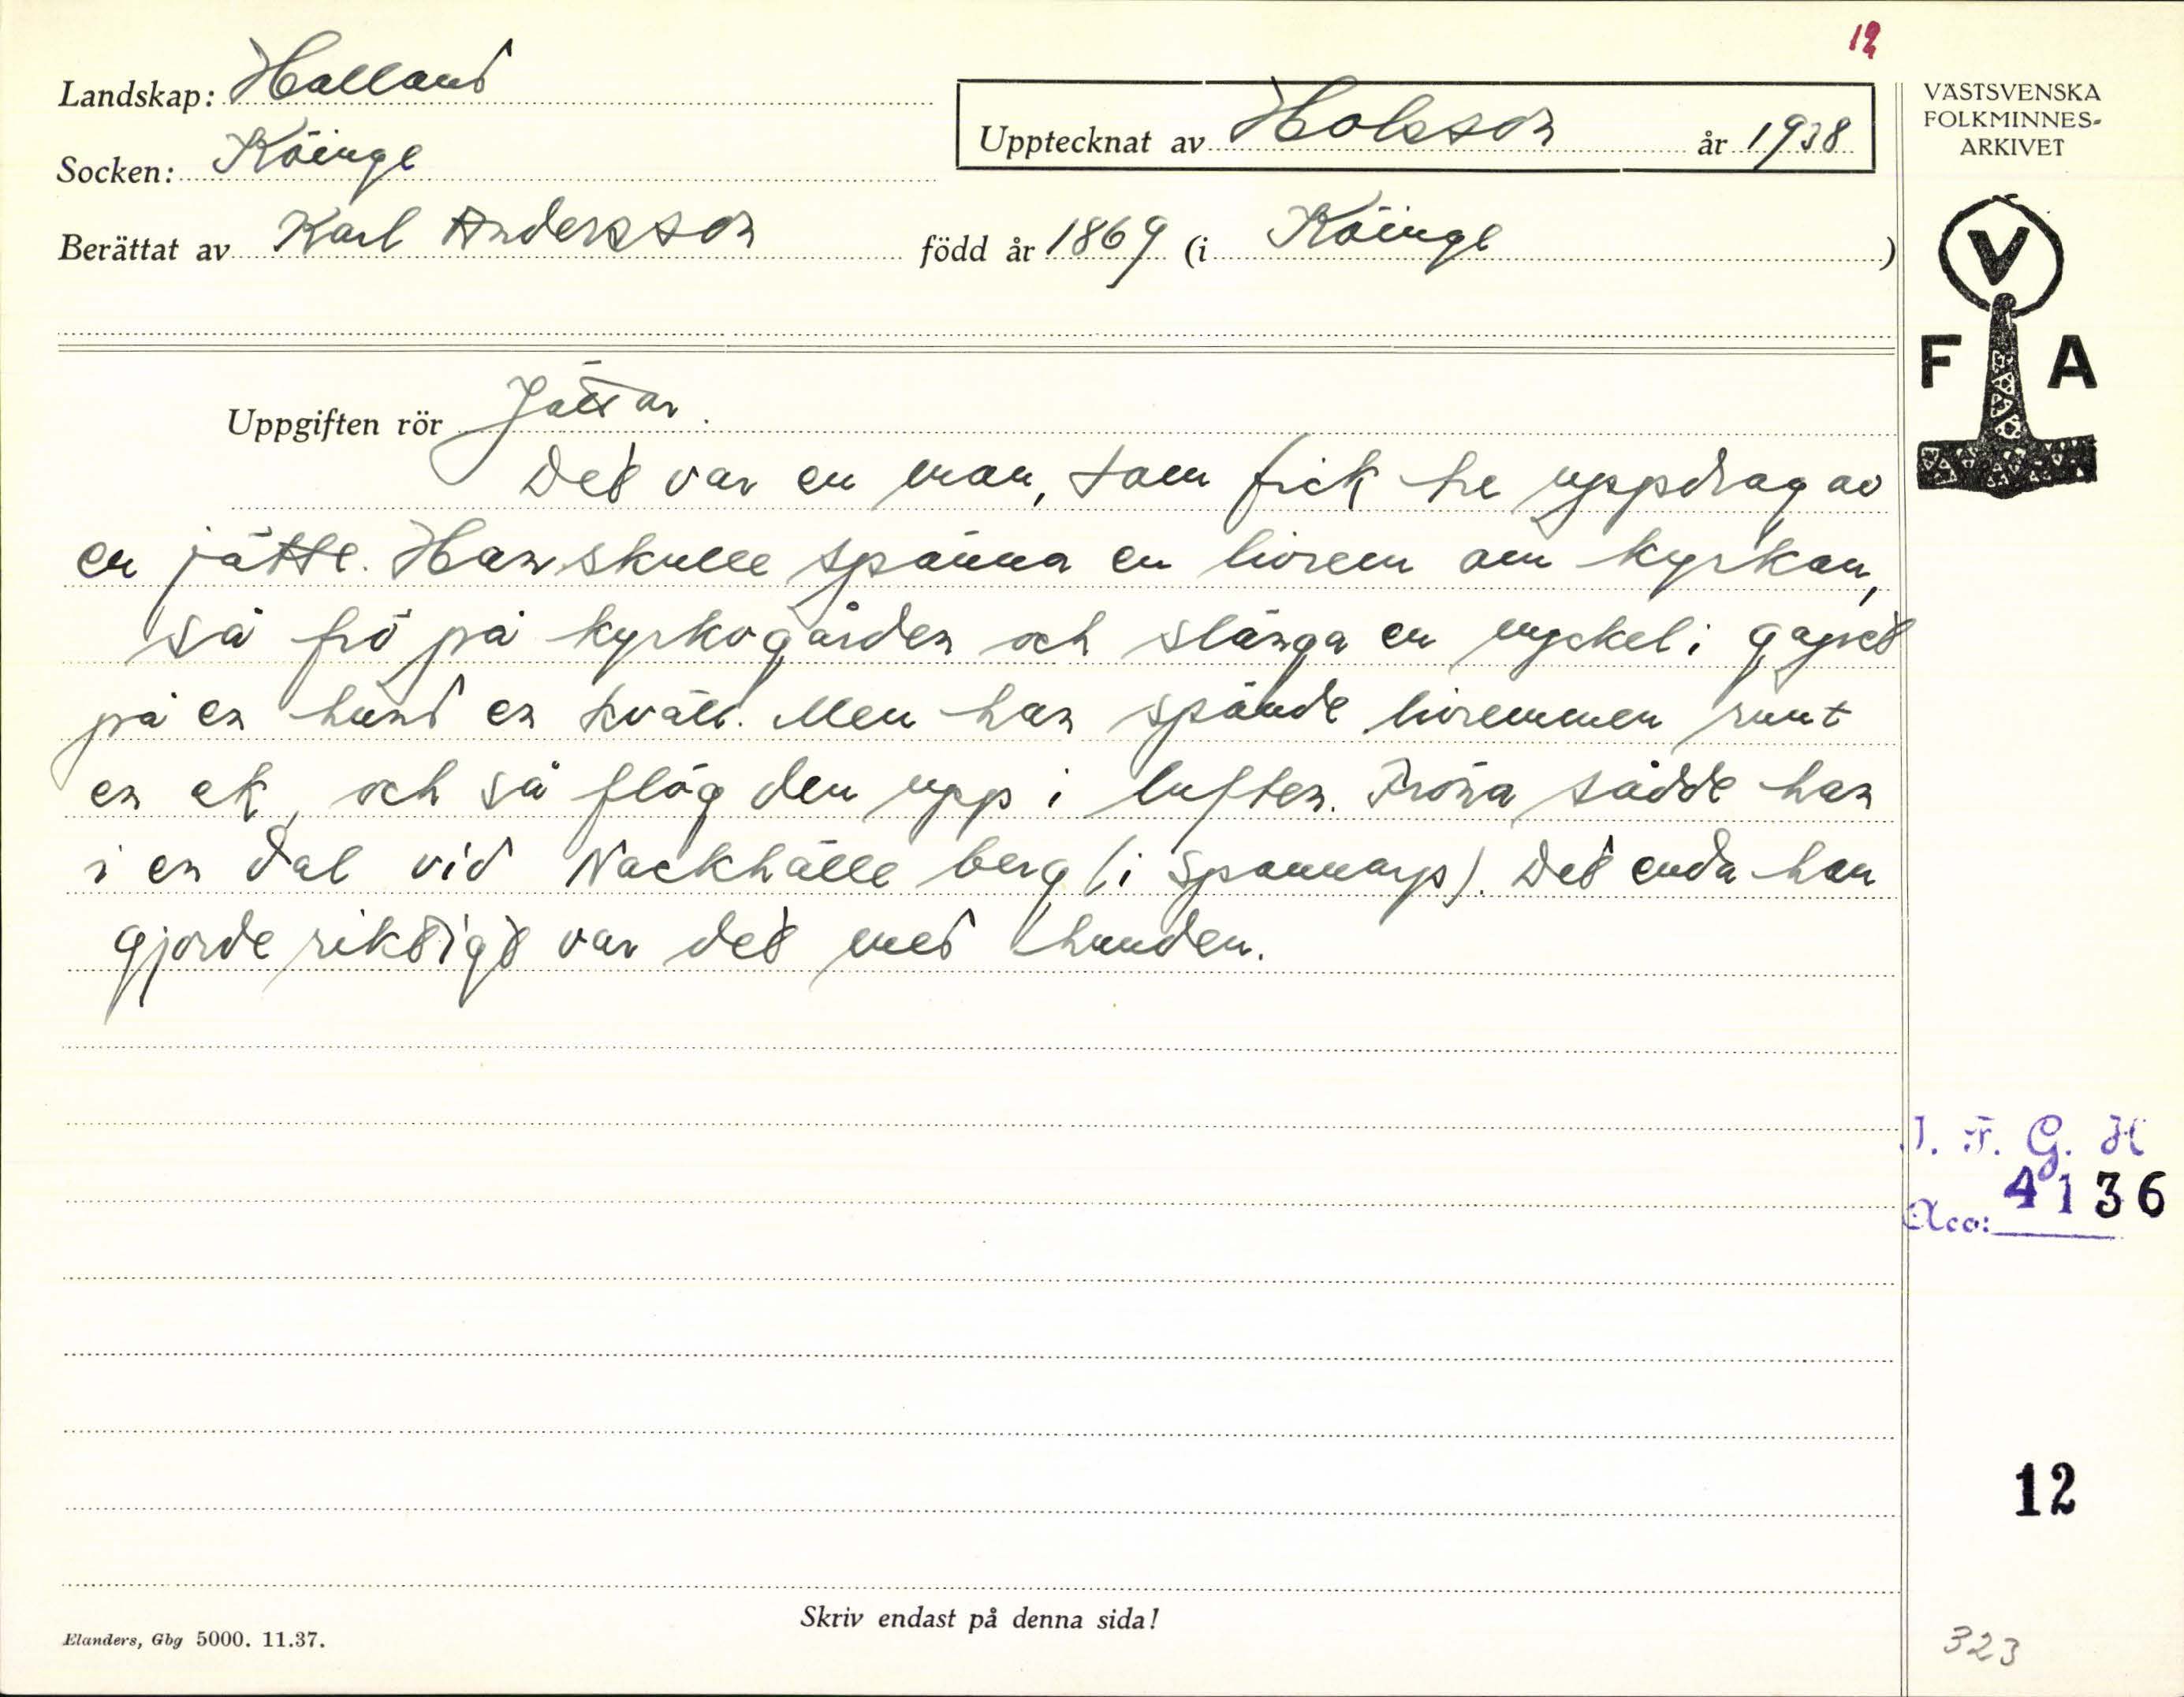 12
Landskap: Halland
Upptecknat av Holsson år 1938
VÄSTSVENSKA
FOLKMINNES-
ARKIVET
Socken: Köinge
Berättat av Karl Andersson född år 1869 (i Köinge)
V
F A
Uppgiften rör Jättar.
Det var en man, som fick tre uppdrag av
en jätte. Han skulle spänna en livrem om kyrkan,
så frö på kyrkogården och slänga en nyckel i gapet
på en hund en kväll. Men han spände livremmen runt
en ek, och så flög den upp i luften. Fröna sådde han
i en dal vid Nackhälle berg (i Spannarp). Det enda han
gjorde riktigt var det med hunden.
I. F. G. H
Acc: 4136
12
Skriv endast på denna sida!
Elanders, Gbg 5000. 11.37.
323